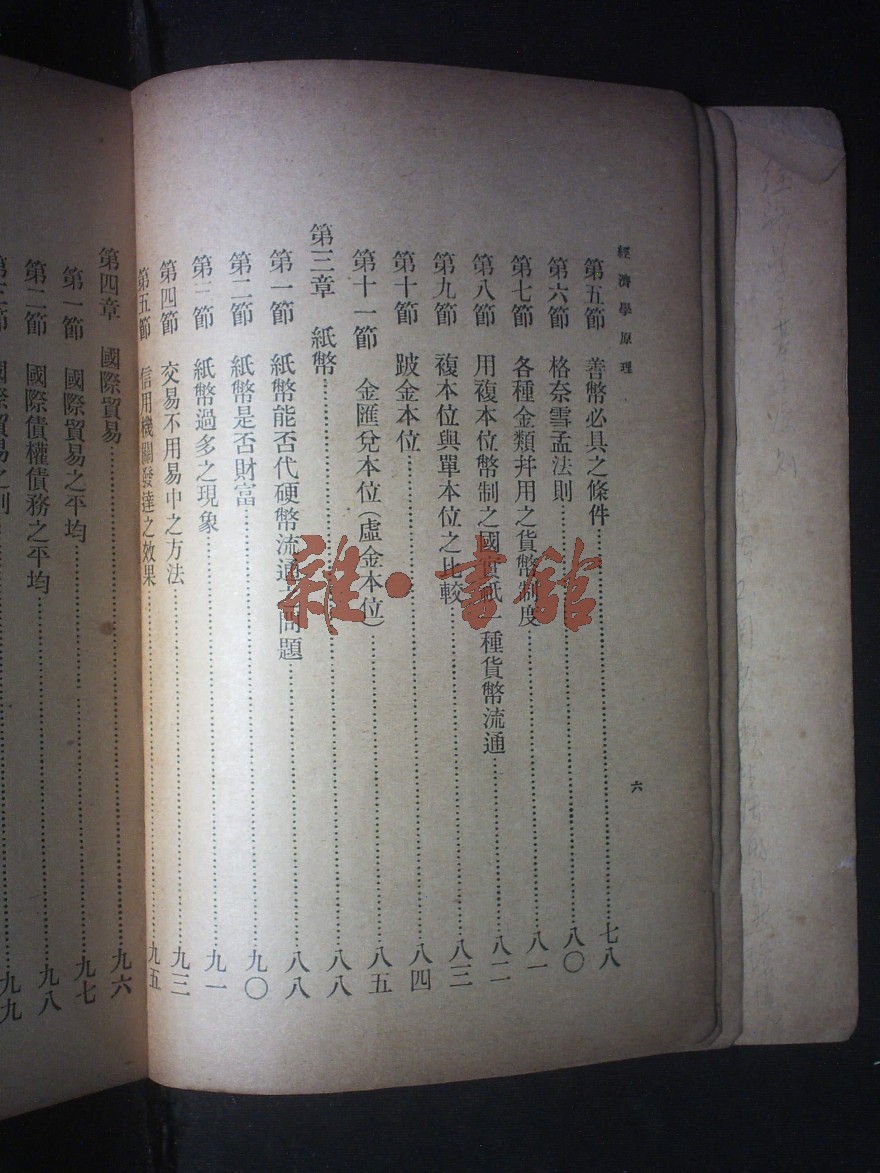 經濟學原理
六
第五節 善幣必具之條件……七八
第六節 格奈雪孟法則……八〇
第七節 各種金類幷用之貨幣制度……八一
第八節 用複本位幣制之國實祇一種貨幣流通……八二
第九節 複本位與單本位之比較……八三
第十節 跛金本位……八四
第十一節 金匯兌本位(虛金本位)……八五
第三章 紙幣……八八
第一節 紙幣能否代硬幣流通之問題……八八
第二節 紙幣是否財富……九〇
第三節 紙幣過多之現象……九一
第四節 交易不用易中之方法……九三
第五節 信用機關發達之效果……九五
第四章 國際貿易……九六
第一節 國際貿易之平均……九七
第二節 國際債權債務之平均……九八
第三節 國際貿易之利……九九
雜·書館